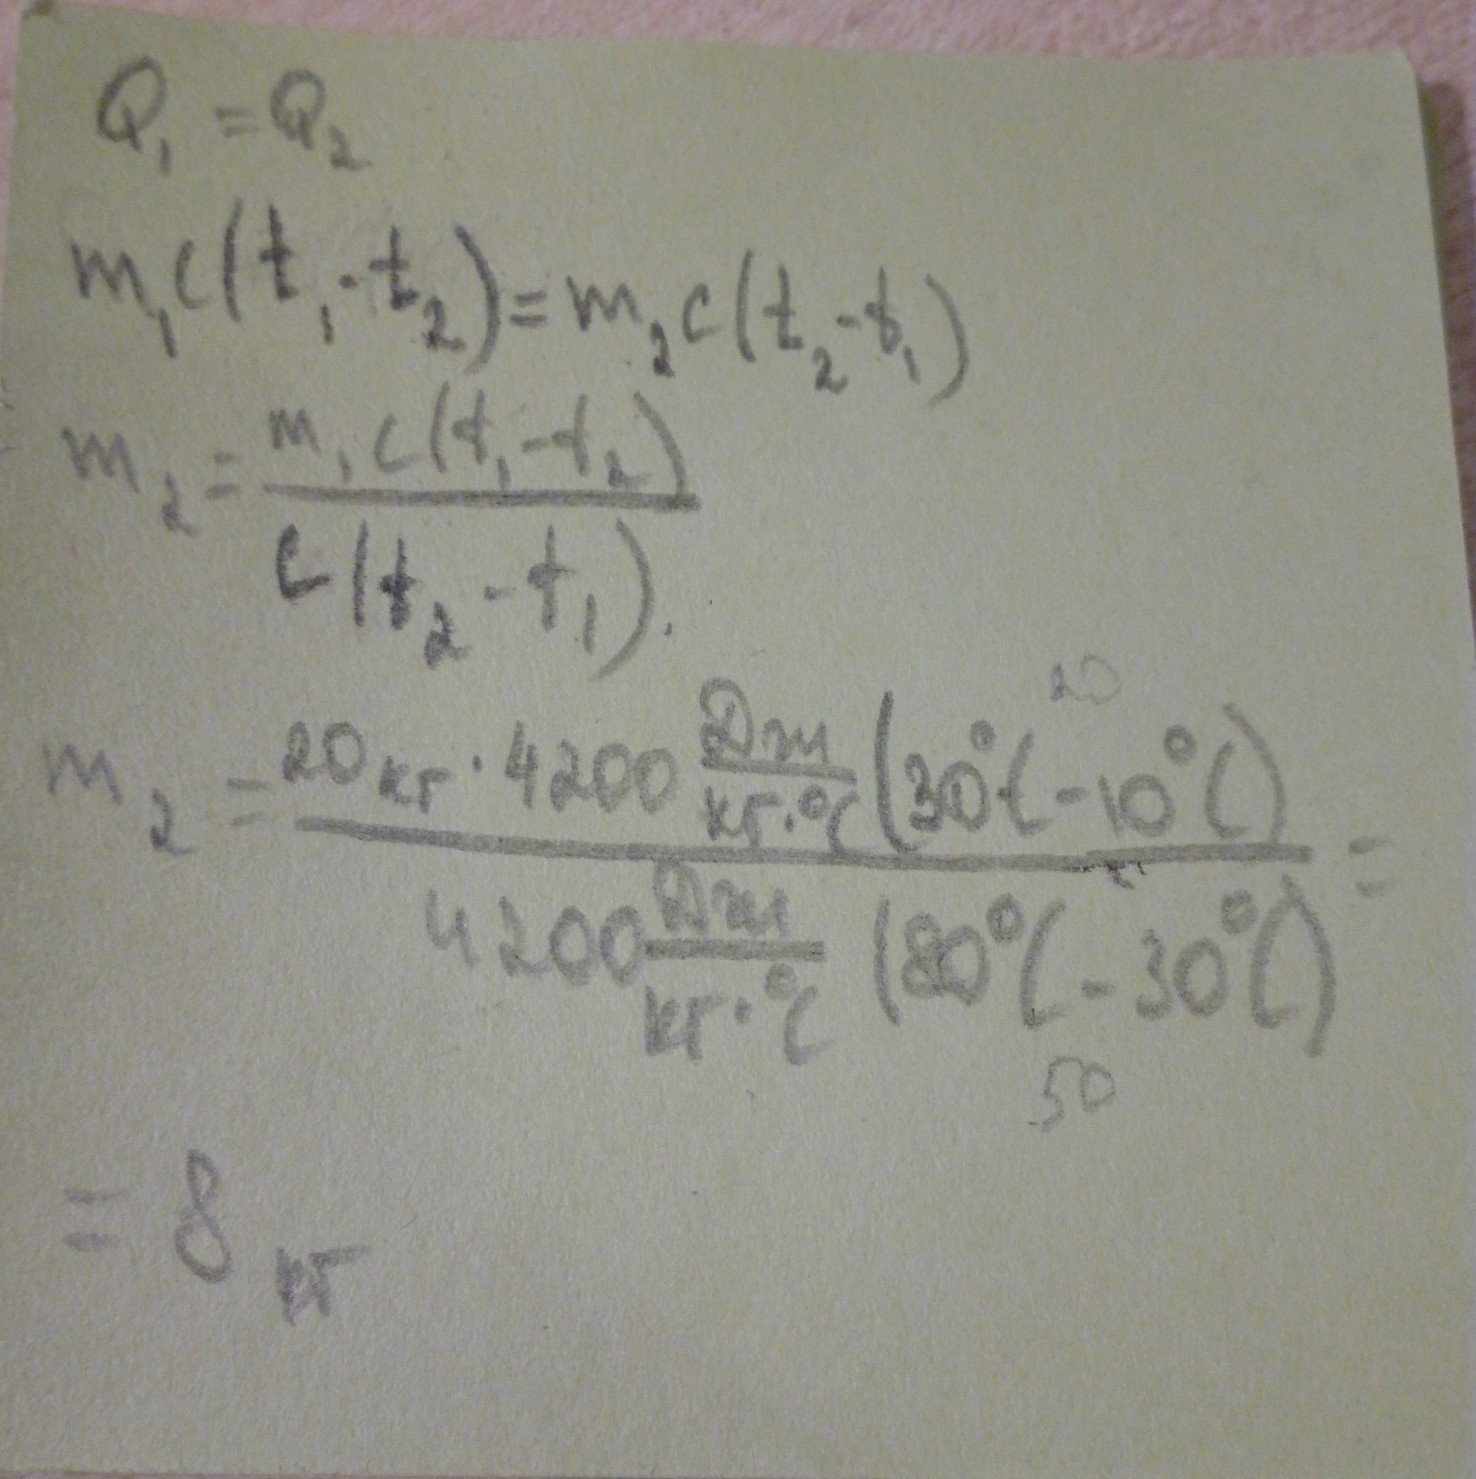 Q₁ = Q₂
m₁c(t₁-t₂)=m₂c(t₂-t₁)
m₂ = m₁c(t₁-t₂)
c(t₂-t₁).
20
m₂ = 20кг · 4200 Дж/кг·°C (30°C-10°C) =
4200 Дж/кг·°C (80°C-30°C)
50
= 8 кг